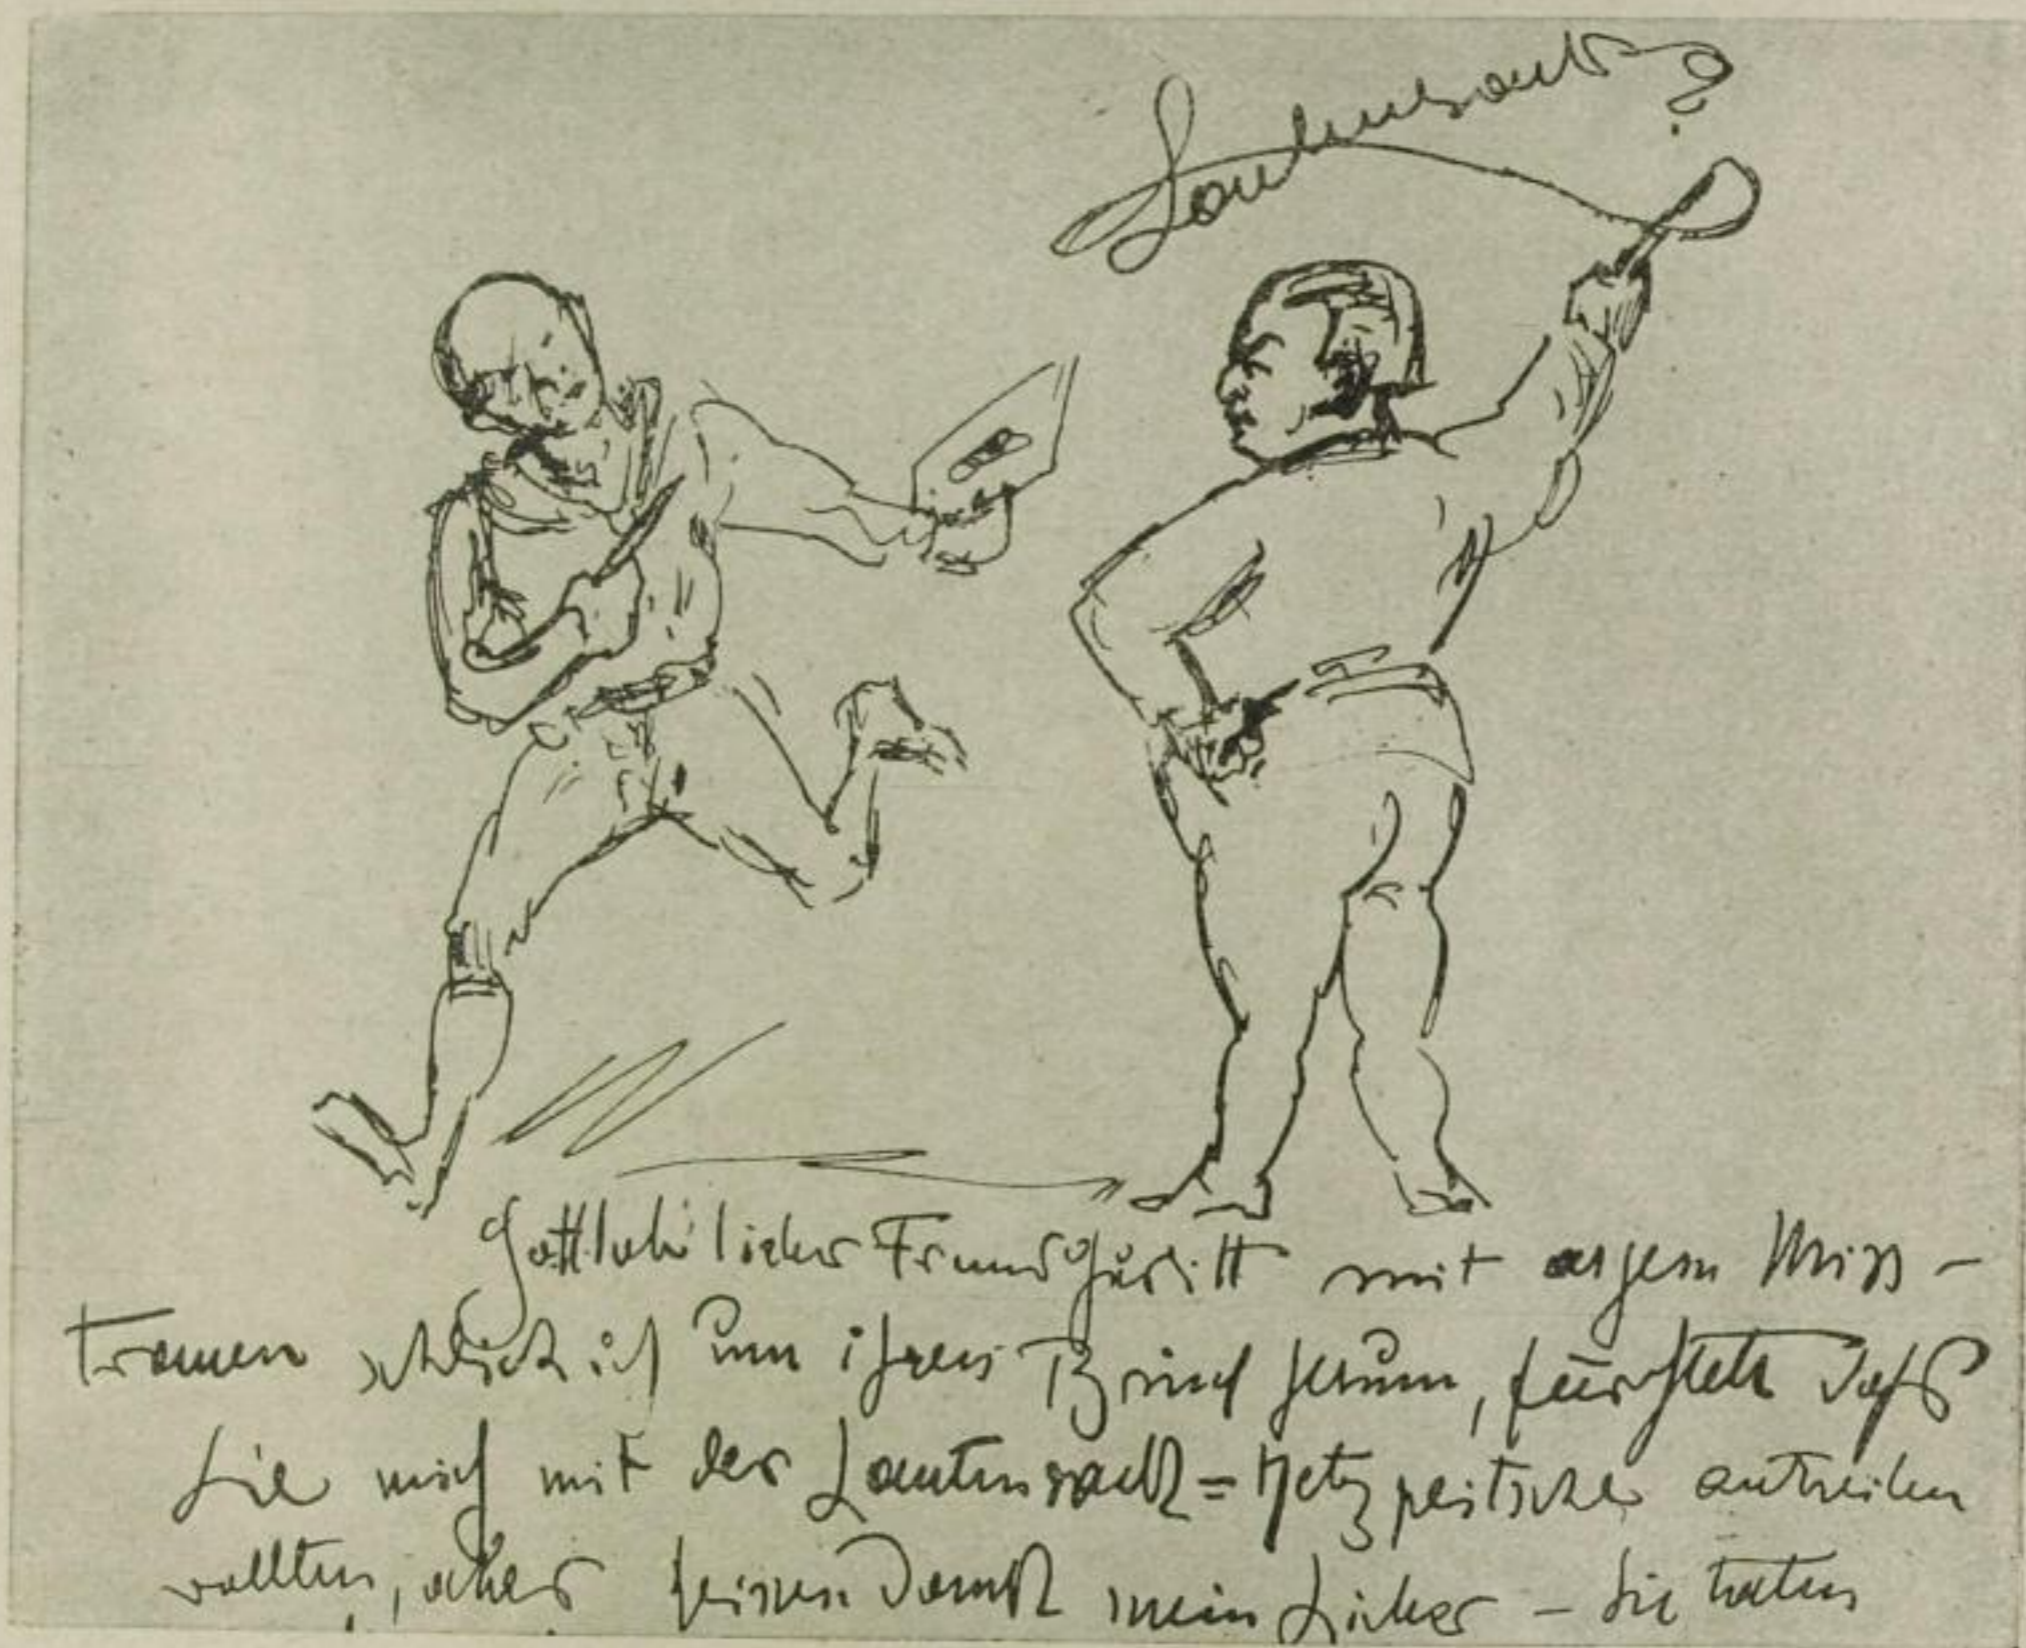 Lautensack?
Gottlob lieber Freund Gurlitt mit argem Miss-
trauen schlich ich um ihren Brief herum, fürchtete daß
Sie mich mit der Lautensack=Hetzpeitsche antreiben
wollten, aber keinen Dank mein Lieber – Sie taten